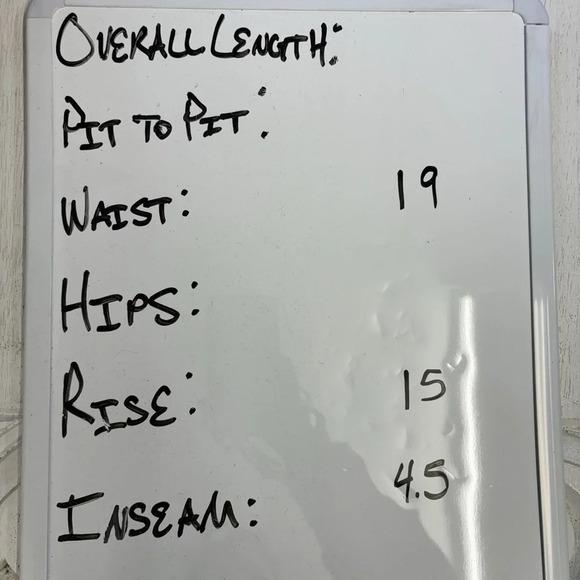 OVERALL LENGTH:
PIT TO PIT:
WAIST: 19
HIPS:
RISE: 15
INSEAM: 4.5